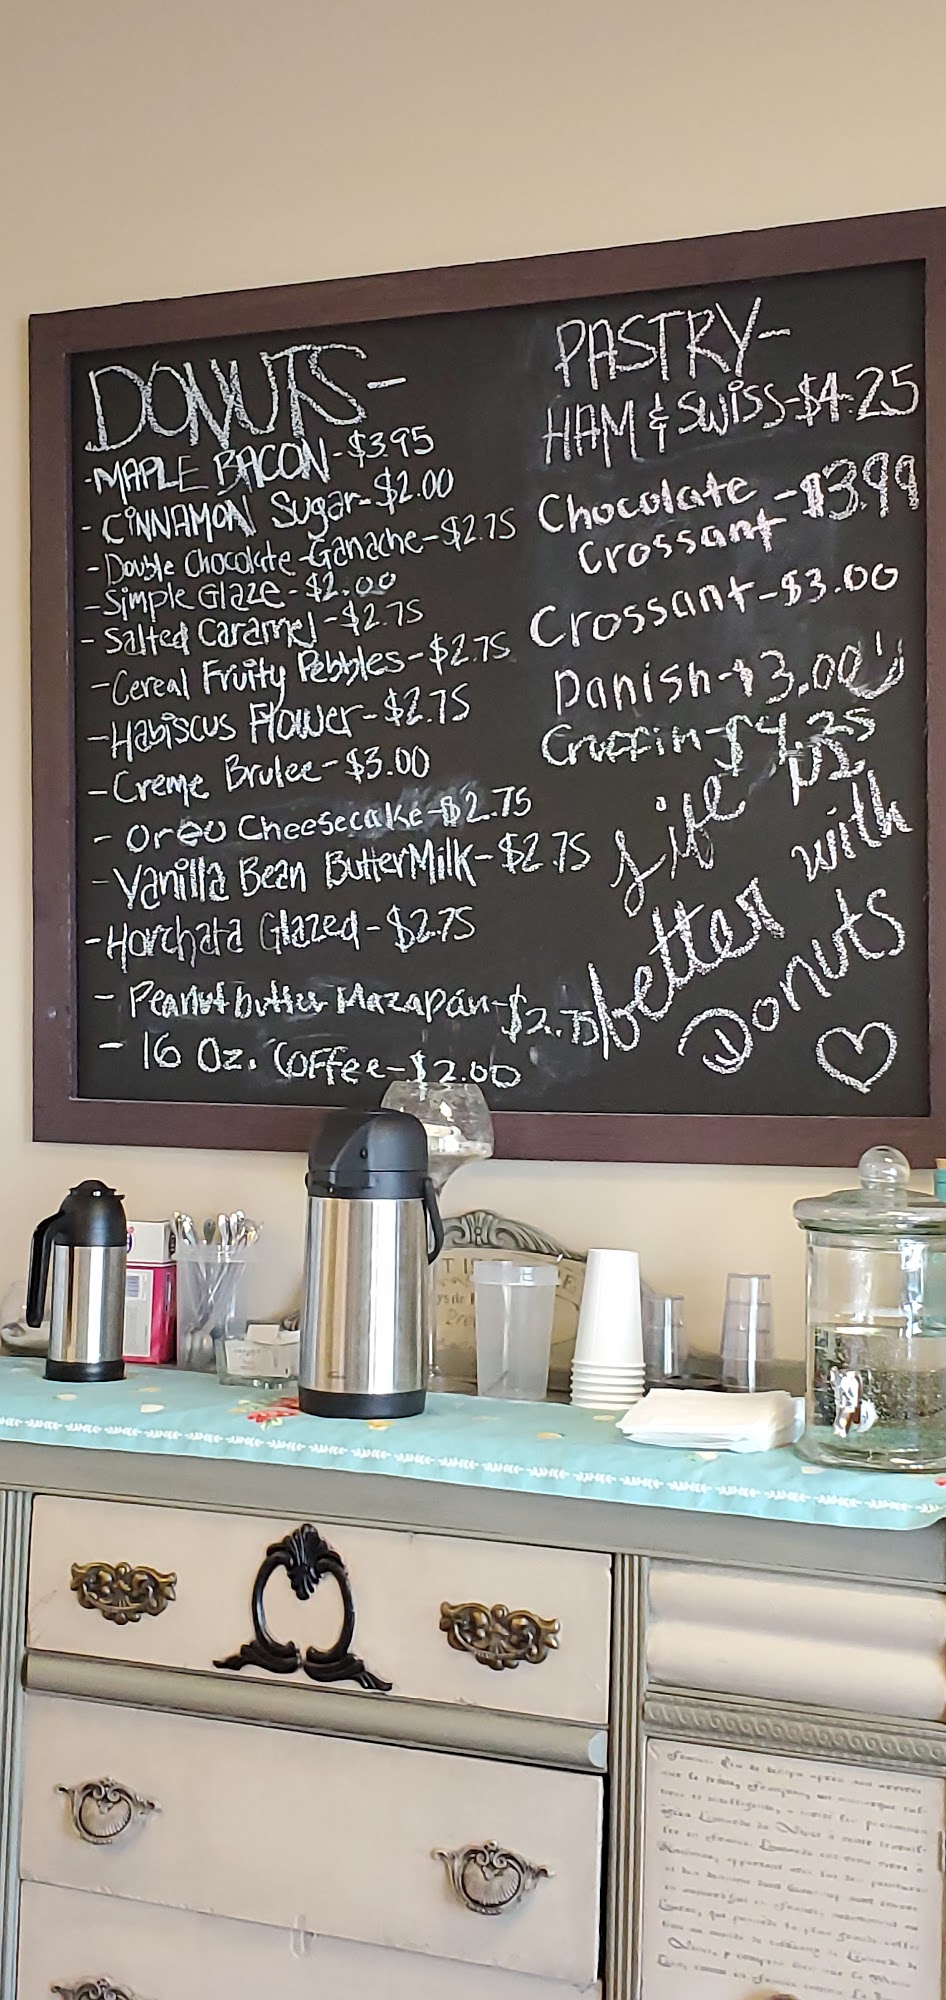 DONUTS-
-MAPLE BACON-$3.95
-CiNNAMON Sugar-$2.00
-Double Chocolate-Ganache-$2.75
-Simple Glaze-$2.00
-Salted Caramel-$2.75
-Cereal Fruity Pebbles-$2.75
-Habiscus Flower-$2.75
-Creme Brulee-$3.00
-Oreo Cheesecake-$2.75
-Vanilla Bean ButterMilk-$2.75
-Horchata Glazed-$2.75
-Peanut butter Mazapán-$2.75
-16 Oz. Coffee-$2.00
PASTRY-
HAM & SWiSS-$4.25
Chocolate -$3.99
Crossant
Crossant-$3.00
Danish-$3.00
Cruffin-$4.25
Life is
better with
Donuts